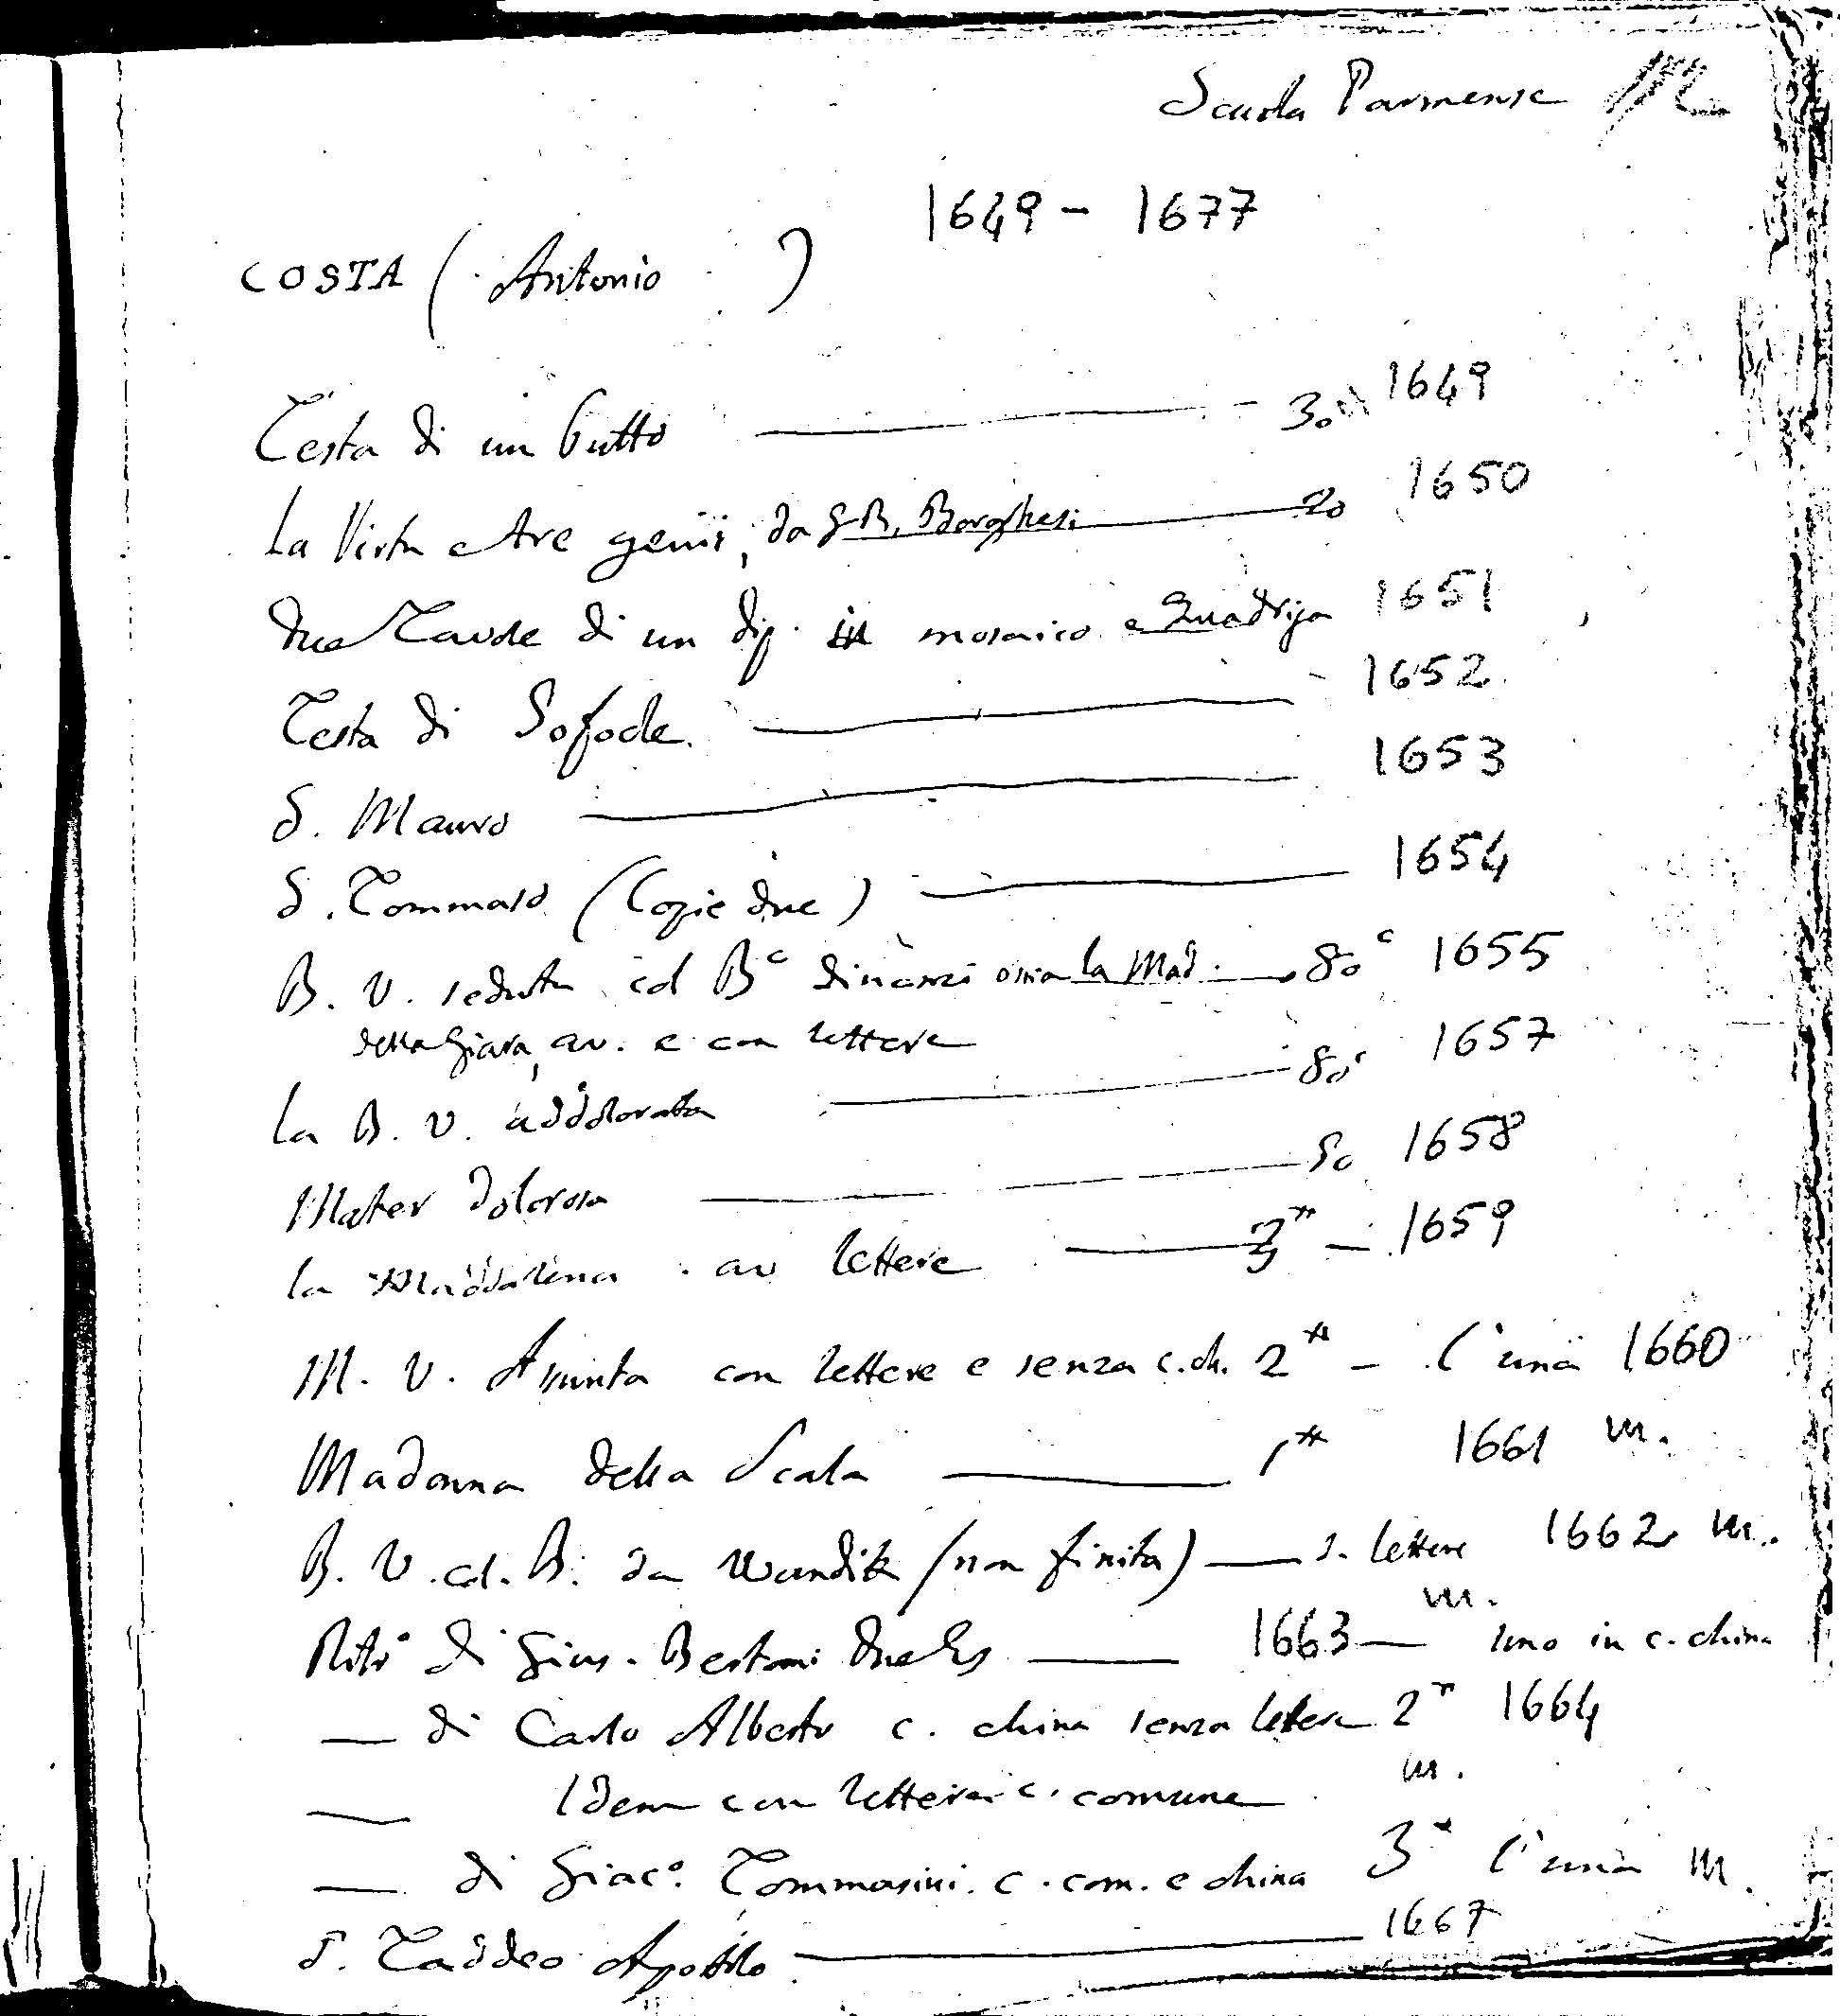 Scuola Parmense
1649 - 1677
COSTA ( Antonio )
Testa di un Putto 30 1649
La Virtu e tre genii, da G B. Borghesi 20 1650
due Tavole di un dip. in mosaico e Quadriga 1651
Testa di Sofocle 1652
S. Mauro 1653
S. Tommaso (Copie due) 1654
B. V. seduta col Bº dinanzi ossia la Mad. 80 c 1655
della Giara, av. e con lettere
La B. V. addolorata 80 c 1657
Mater dolorosa 50 1658
la Maddalena av lettere 1659
M. V. Assunta con lettere e senza c.ch. 2 - l'una 1660
Madonna della Scala 1 1661 m.
B. V. col. B. da Wandik (non finita) s. lettere 1662 m.
m.
Ritrº di Gius. Bertani due Es 1663 — uno in c. china
— di Carlo Alberto c. china senza lettere 2 1664
— Idem con lettere c. comune m.
— di Giacº. Tommasini. c. com. e china 3 l'una m.
S. Taddeo Apostolo 1667